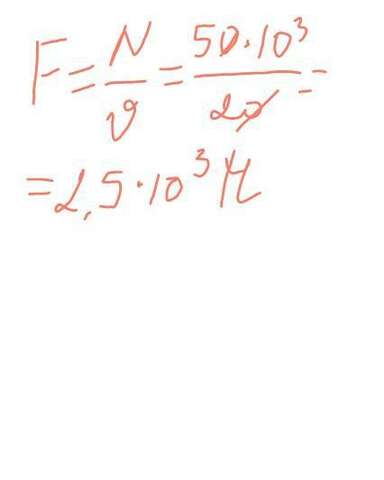 F = N/ϑ = 50·10³/20 =
= 2,5·10³ Н